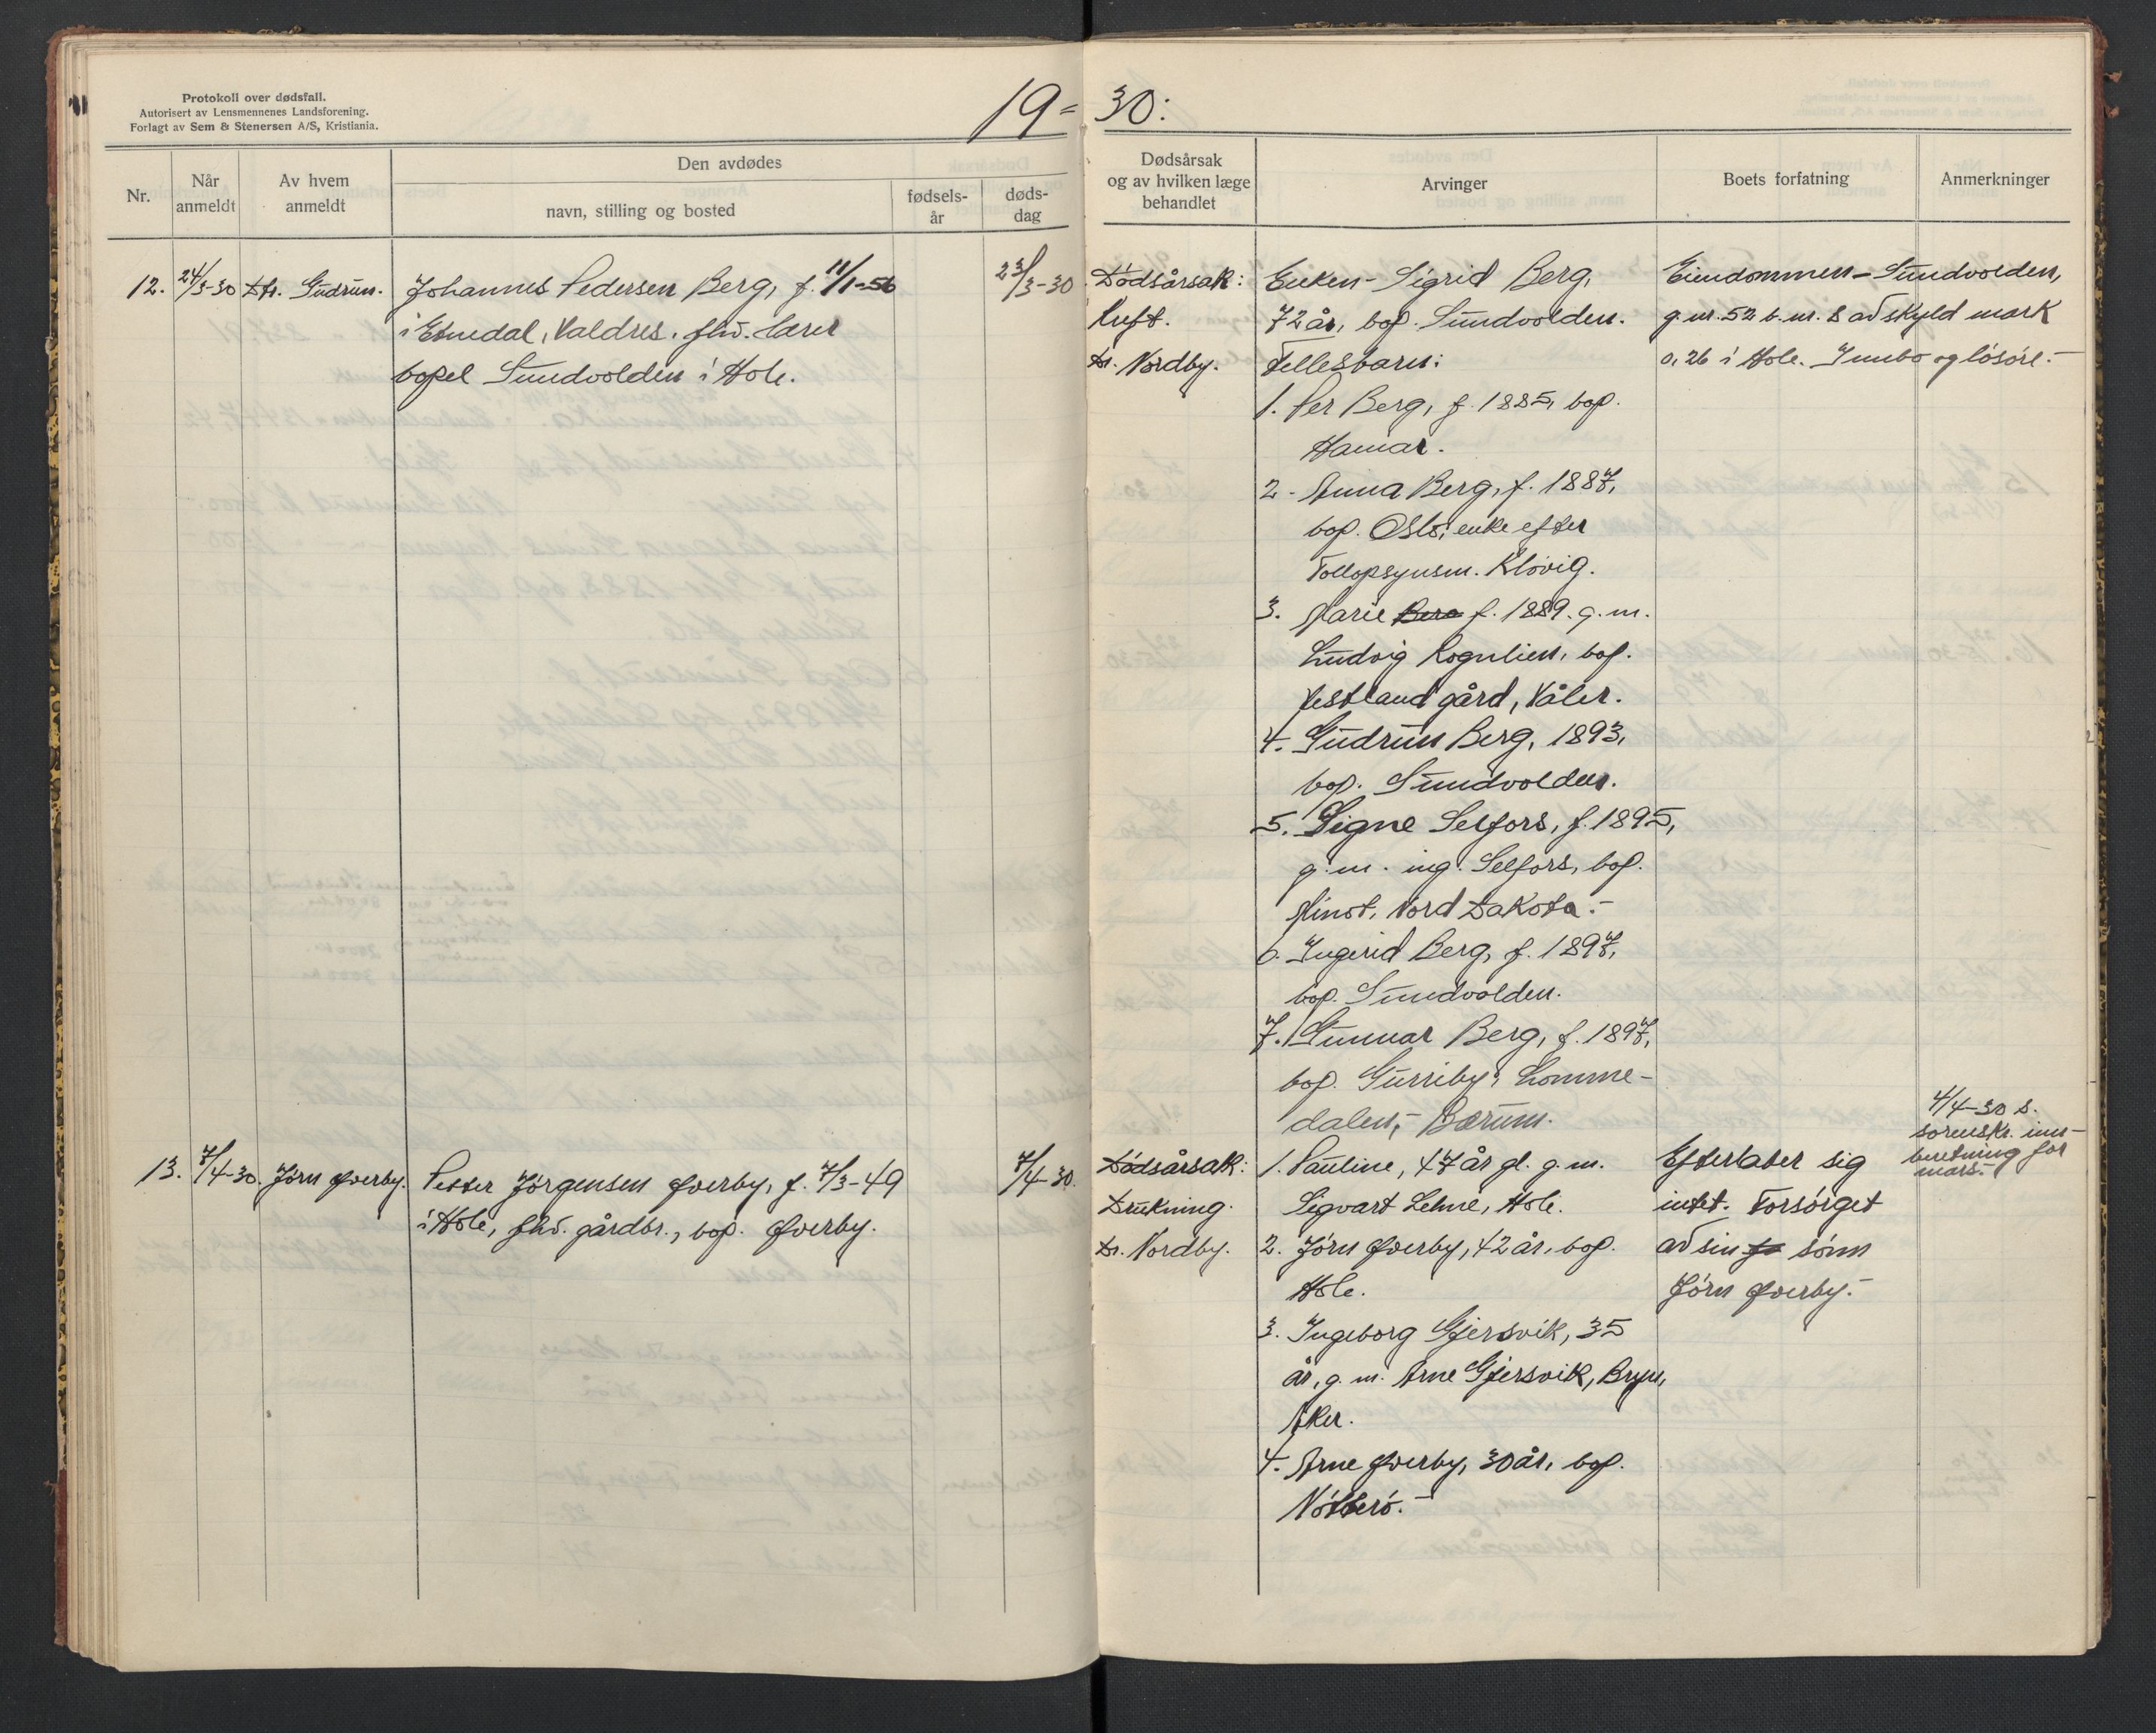 Protokoll over dødsfall.
Autorisert av Lensmennenes Landsforening.
Forlagt av Sem & Stenersen A/S, Kristiania.
19 = 30:
Nr.
Når anmeldt
Av hvem anmeldt
Den avdødes
navn, stilling og bosted
fødsels-år
døds-dag
Dødsårsak og av hvilken læge behandlet
Arvinger
Boets forfatning
Anmerkninger
12. 24/3-30 Dtr. Gudrun. Johannes Pedersen Berg, f. 11/1-56 23/3-30
i Etnedal, Valdres, fhv. lærer
bopel Sundvolden i Hole.
Dødsårsak:
Kreft.
Dr. Nordby.
Enken - Sigrid Berg,
72 år, bop. Sundvolden.
Fellesbarn:
1. Per Berg, f. 1885, bop.
Hamar.
2. Anna Berg, f. 1887,
bop. Oslo, enke efter
Tollopsynsm. Kløvig.
3. Marie Berg f. 1889. g.m.
Ludvig Rognlien, bop.
Vestland gård, Våler.
4. Gudrun Berg, 1893,
bop. Sundvolden.
5. Signe Selfors, f. 1895,
g.m. ing. Selfors, bop.
Minot, Nord Dakota.-
6. Ingerid Berg, f. 1897,
bop. Sundvolden.
7. Gunnar Berg, f. 1897,
bop. Gurriby, Lomme-
dalen, Bærum.
Eiendommen - Sundvolden,
g.nr. 52 b.nr. 8 av skyld mark
0,26 i Hole. Innbo og løsøre.-
4/4-30 s.
sorenskr. inn-
beretning for
mars.-
13. 7/4-30. Jørn Øverby. Petter Jørgensen Øverby, f. 7/3-49 7/4-30.
i Hole, fhv. gårdbr., bop. Øverby.
Dødsårsak:
Drukning.
Dr. Nordby.
1. Pauline, 47 år gl. g.m.
Sigvart Lehne, Hole.
2. Jørn Øverby, 42 år, bop.
Hole.
3. Ingeborg Gjersvik, 35
år, g.m. Arne Gjersvik, Bryn,
Aker.
4. Arne Øverby, 30 år, bop.
Nøtterø.-
Efterlater sig
intet. Forsørget
av sin sønn
Jørn Øverby.-